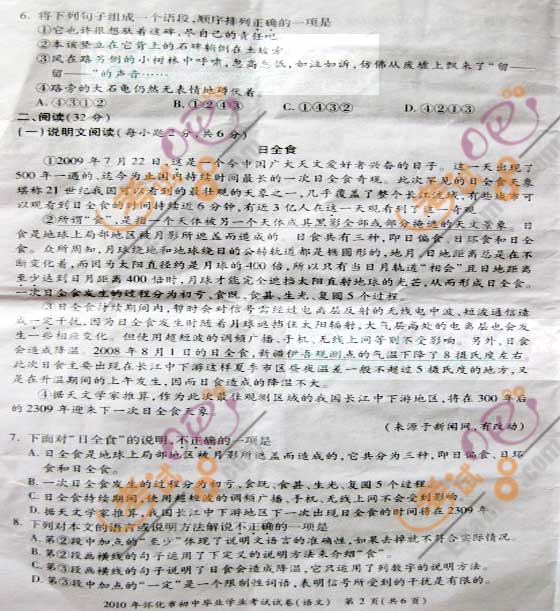 6. 将下列句子组成一个语段,顺序排列正确的一项是
①它也许很想驮着这碑,尽自己的责任吧
②本该竖立在它背上的石碑躺倒在土坡旁
③风在路另侧的小树林中呼啸,忽高忽低,如泣如诉,仿佛从废墟上飘来了“留——
留——”的声音……
④路旁的大石龟仍然无表情地蹲伏着
A.④③①② B.①②④③ C.①④③② D.④②①③
二、阅读(32分)
(一)说明文阅读(每小题2分,共6分)
日全食
①2009年7月22日,这是一个令中国广大天文爱好者兴奋的日子。这一天出现了
500年一遇的、迄今为止国内持续时间最长的一次日全食奇观。此次罕见的日全食天象
堪称21世纪我国可以看到的最壮观的天象之一,几乎覆盖了整个长江流域,有些城市可
以观看到日全食的时间持续近6分钟,有近3亿人在这一天观看到了这一奇观
②所谓“食”,是指一个天体被另一个天体或其黑影全部或部分掩遮的天文景象。日
食是地球上局部地区被月影所遮盖而造成的。日食共有三种,即日偏食、日环食和日全
食。众所周知,月球绕地和地球绕日的公转轨道都是椭圆形的,地月、日地距离总是在不
断变化着,而因为太阳直径约是月球的400倍,所以只有当日月轨道“相会”且日地距离
至少达到日月距离400倍时,月球才能完全遮挡太阳直射地球的光芒,从而形成日全食。
一次日全食发生的过程分为初亏、食既、食甚、生光、复圆5个过程。
③日全食持续期间内,暂时会对信号需经过电离层反射的无线电中波、短波通信造
成一定干扰,因为日全食发生时随着月球遮挡住太阳辐射,大气层高处的电离层也会发
生一些相应变化。但使用超短波的调频广播、手机、无线上网等则不受影响。另外,日食
会造成降温。2008年8月1日的日全食,新疆伊吾观测点的气温下降了8摄氏度左右。
此次日食主要出现在长江中下游这样夏季市区昼夜温差一般不超过5摄氏度的地方,又
是在升温期间的上午发生,因而日食造成的降温不大。
④据天文学家推算,作为此次最佳观测区域的我国长江中下游地区,将在300年后
的2309年迎来下一次日全食天象
(来源于新闻网,有改动)
7. 下面对“日全食”的说明,不正确的一项是
A. 日全食是地球上局部地区被月影所遮盖而造成的,它共分为三种,即日偏食、日环
食和日全食。
B. 一次日全食发生的过程分为初亏、食既、食甚、生光、复圆5个过程
C. 日全食持续期间,使用超短波的调频广播、手机、无线上网不会受到影响。
D. 据天文学家推算,我国长江中下游地区下一次出现日全食的时间将在2309年
8. 下列对本文的语言或说明方法解说不正确的一项是
A. 第②段中加点的“至少”体现了说明文语言的准确性,如果去掉就不符合实际情况。
B. 第②段画横线的句子运用了下定义的说明方法来介绍“食”。
C. 第③段画横线的句子说明了日食会造成降温,它只运用了列数字的说明方法。
D. 第③段中加点的“一定”是一个限制性词语,表明信号所受到的干扰是有限的。
2010年怀化市初中毕业学生考试试卷(语文) 第2页(共6页)